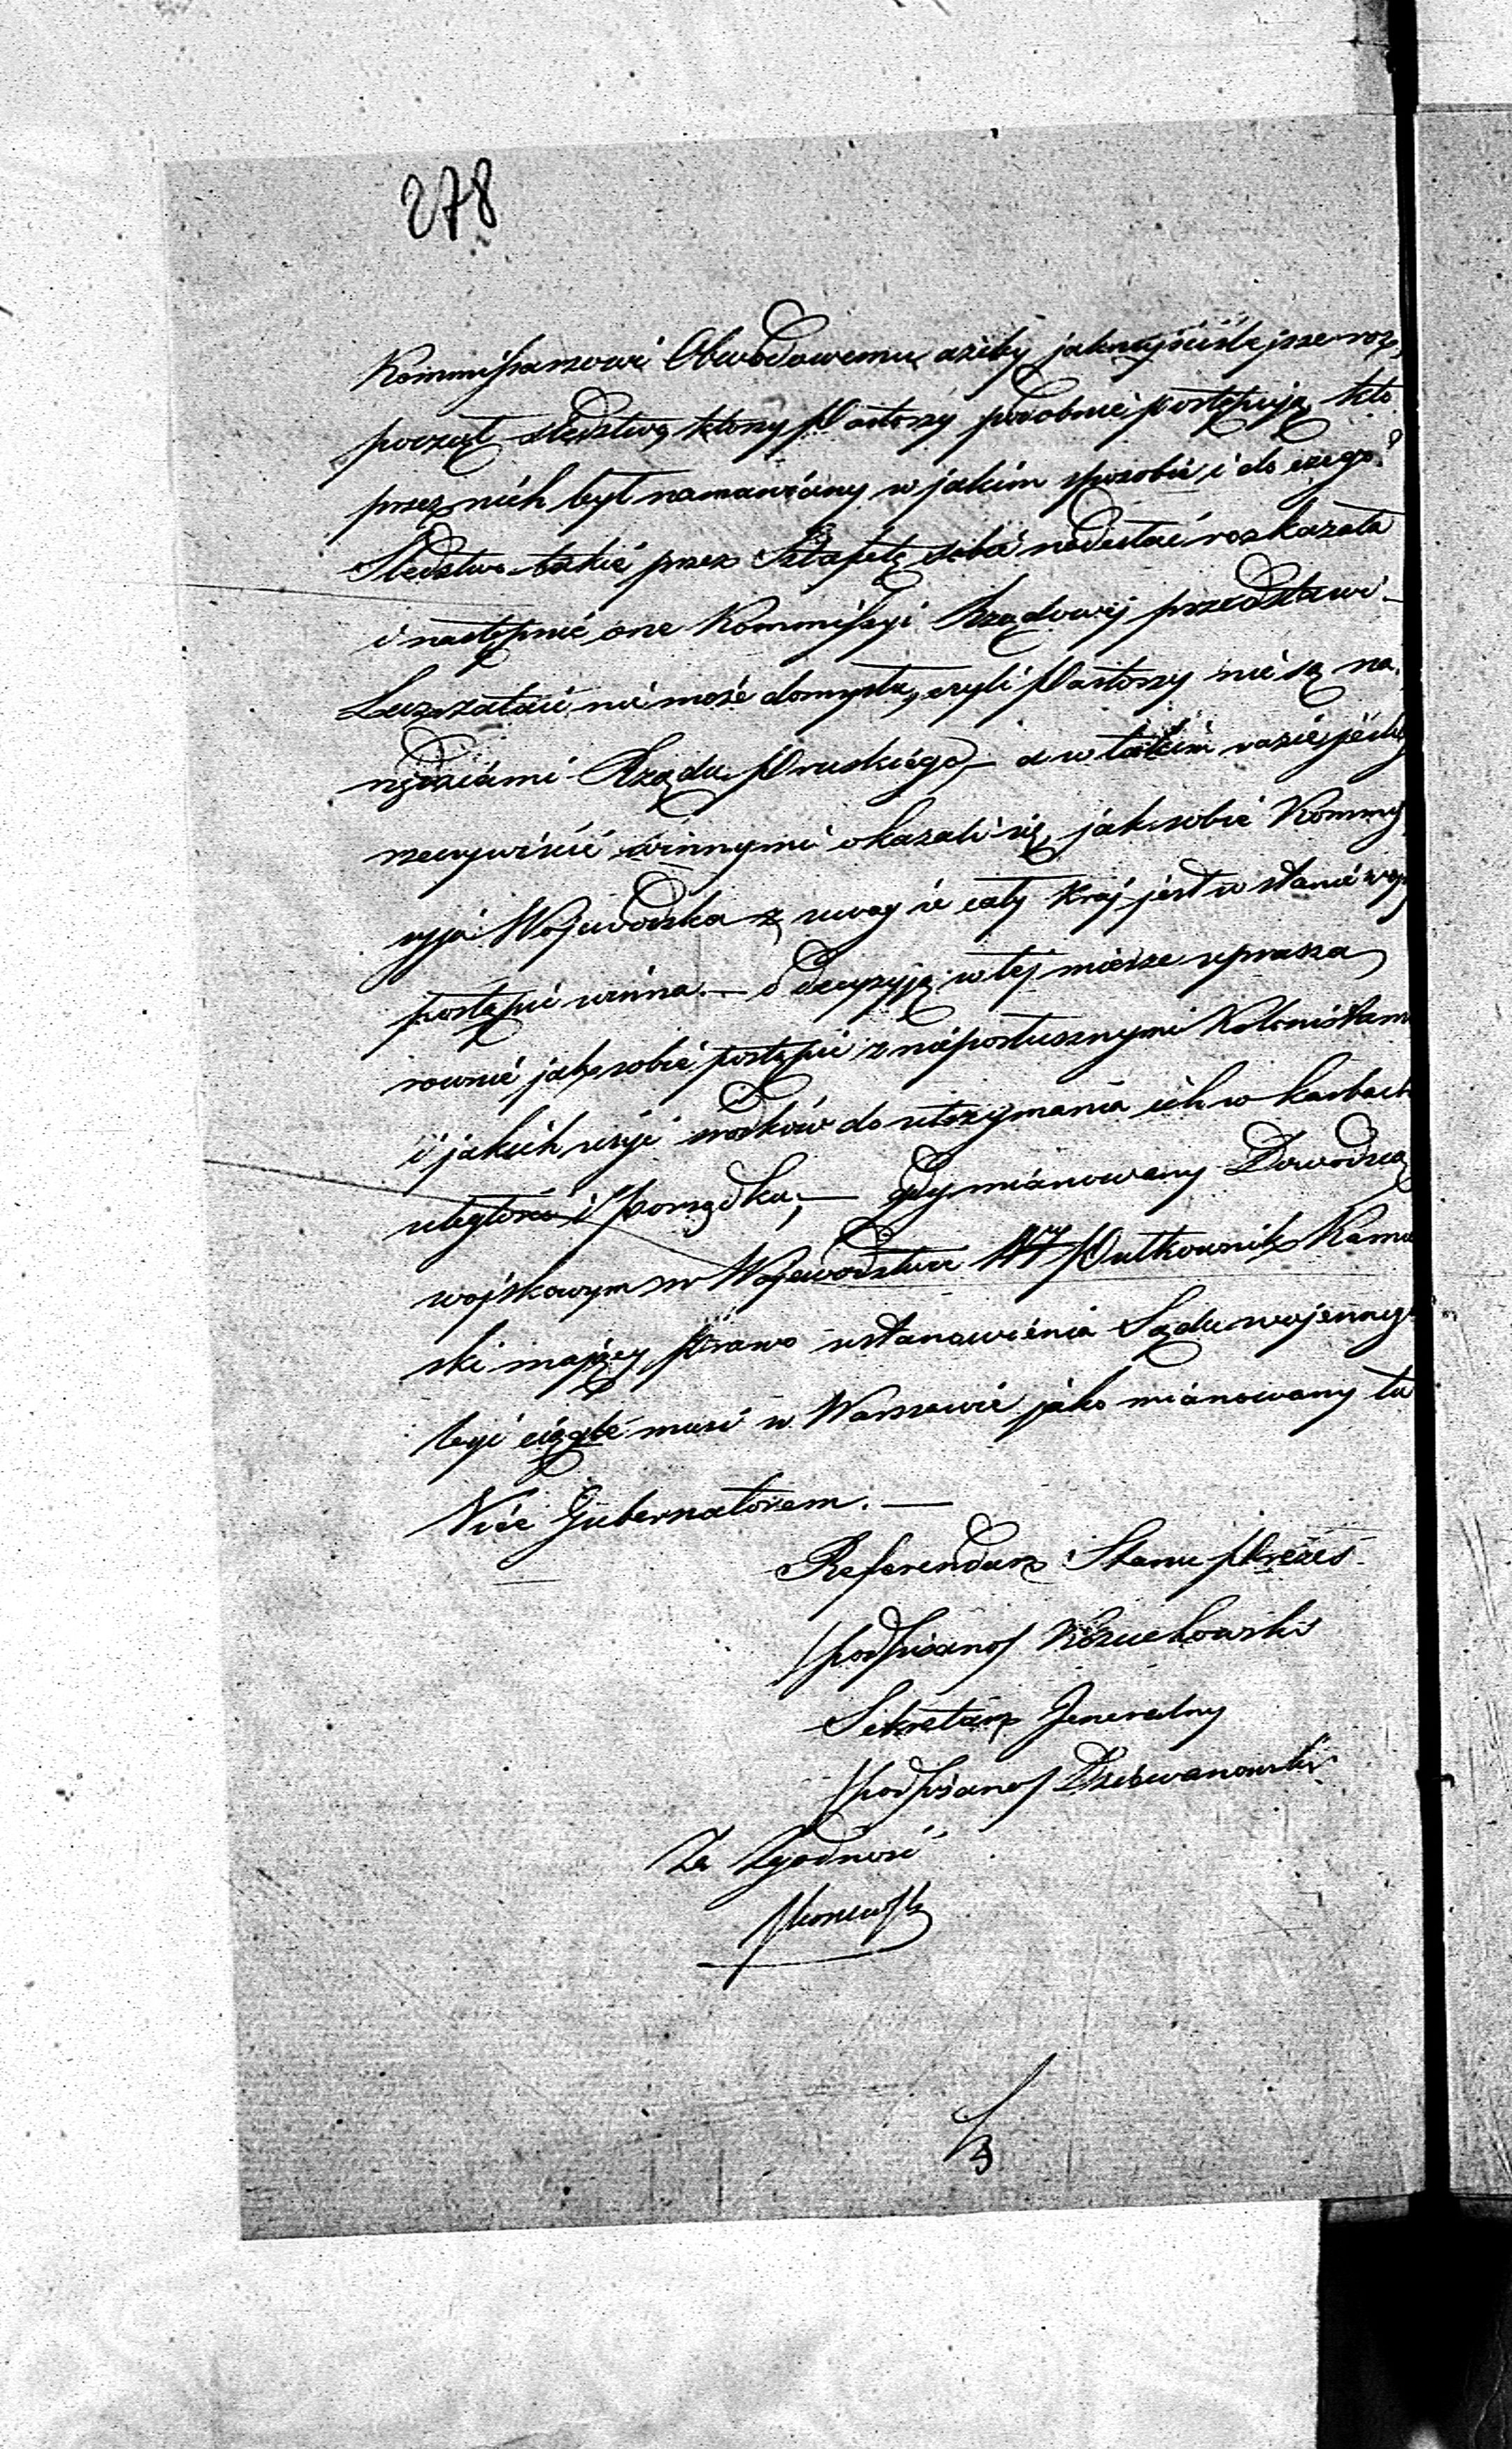 278
Kommissarzowi Obwodowemu ażeby jaknayściśleysze roz,
począł śledztwo, którzy Pastorzy podobnie postępują, kto
przez nich był namawiany w jakim sposobie i do czego?
Śledztwo takie przez Sztafetę sobie nadesłać rozkazała
i następnie one Kommissyi Rządowej przedstawi.—
Lecz zataić nie może domysłu, czyli Pastorzy nie są na,
rzędziami Rządu Pruskiego,— a w takim razie jeżeliby
rzeczywiście winnymi okazali się, jak sobie Kommis,
syja Wojewódzka z uwagi że cały Kraj jest w stanie
postąpić winna.— o decyzyję w tej mierze uprasza
rownie jak sobie postąpić z niéposłusznymi Kolonistami
i jakich użyć srodków do utrzymania ich w karbach
uległości i porządku;— gdy mianowany Dowódzcą
wojskowym w Województwie Pułkownik Kamiń
ski mający prawo ustanowienia Sądu wojennego
być ciągle musi w Warszawie jako mianowany tu
Vice Gubernatorem.—
Referendarz Stanu Prezes
/podpisano/ Kożuchowski
Sekretarz Jeneralny
/podpisano/ Dziewanowski
Za Zgodność